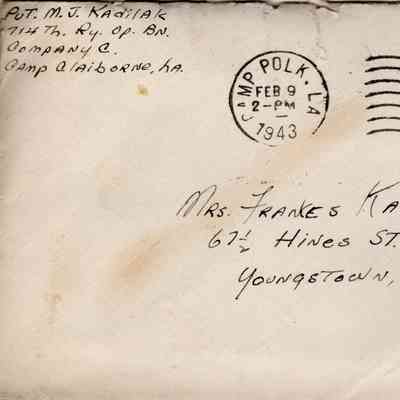 Pvt. M. J. Kadilak
714Th. Ry. Op. Bn.
Company C.
Camp Claiborne, La.
CAMP POLK, LA
FEB 9
2-PM
1943
Mrs. Frances Ka
67½ Hines St.
Youngstown,